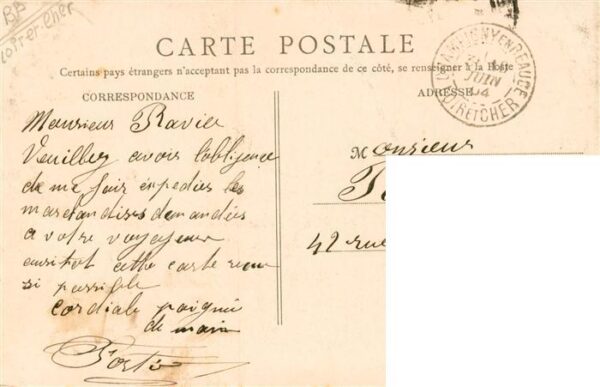 BP
Loir-et-Cher
CARTE POSTALE
Certains pays étrangers n'acceptant pas la correspondance de ce côté, se renseigner à la Poste
CORRESPONDANCE
ADRESSE
JUIN
04
Monsieur Ravier
Veuillez avoir l'obligence
de me fair expedies les
marchandises demandées
a votre voyageur
ausitot cette carte recue
si possible
cordiale poignie
de main
Monsieur
42 rue